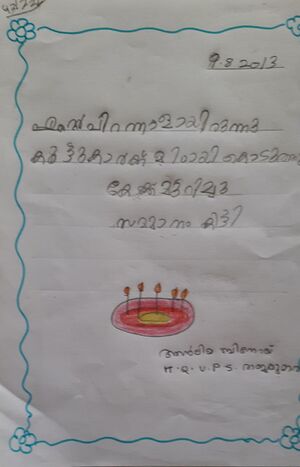 9.8.2013
എന്റെ പിറന്നാളായിരുന്നു
കൂട്ടുകാർക്ക് മിഠായി കൊടുത്തു
കേക്ക് മുറിച്ചു
സമ്മാനം കിട്ടി
H.Q.U.P.S.